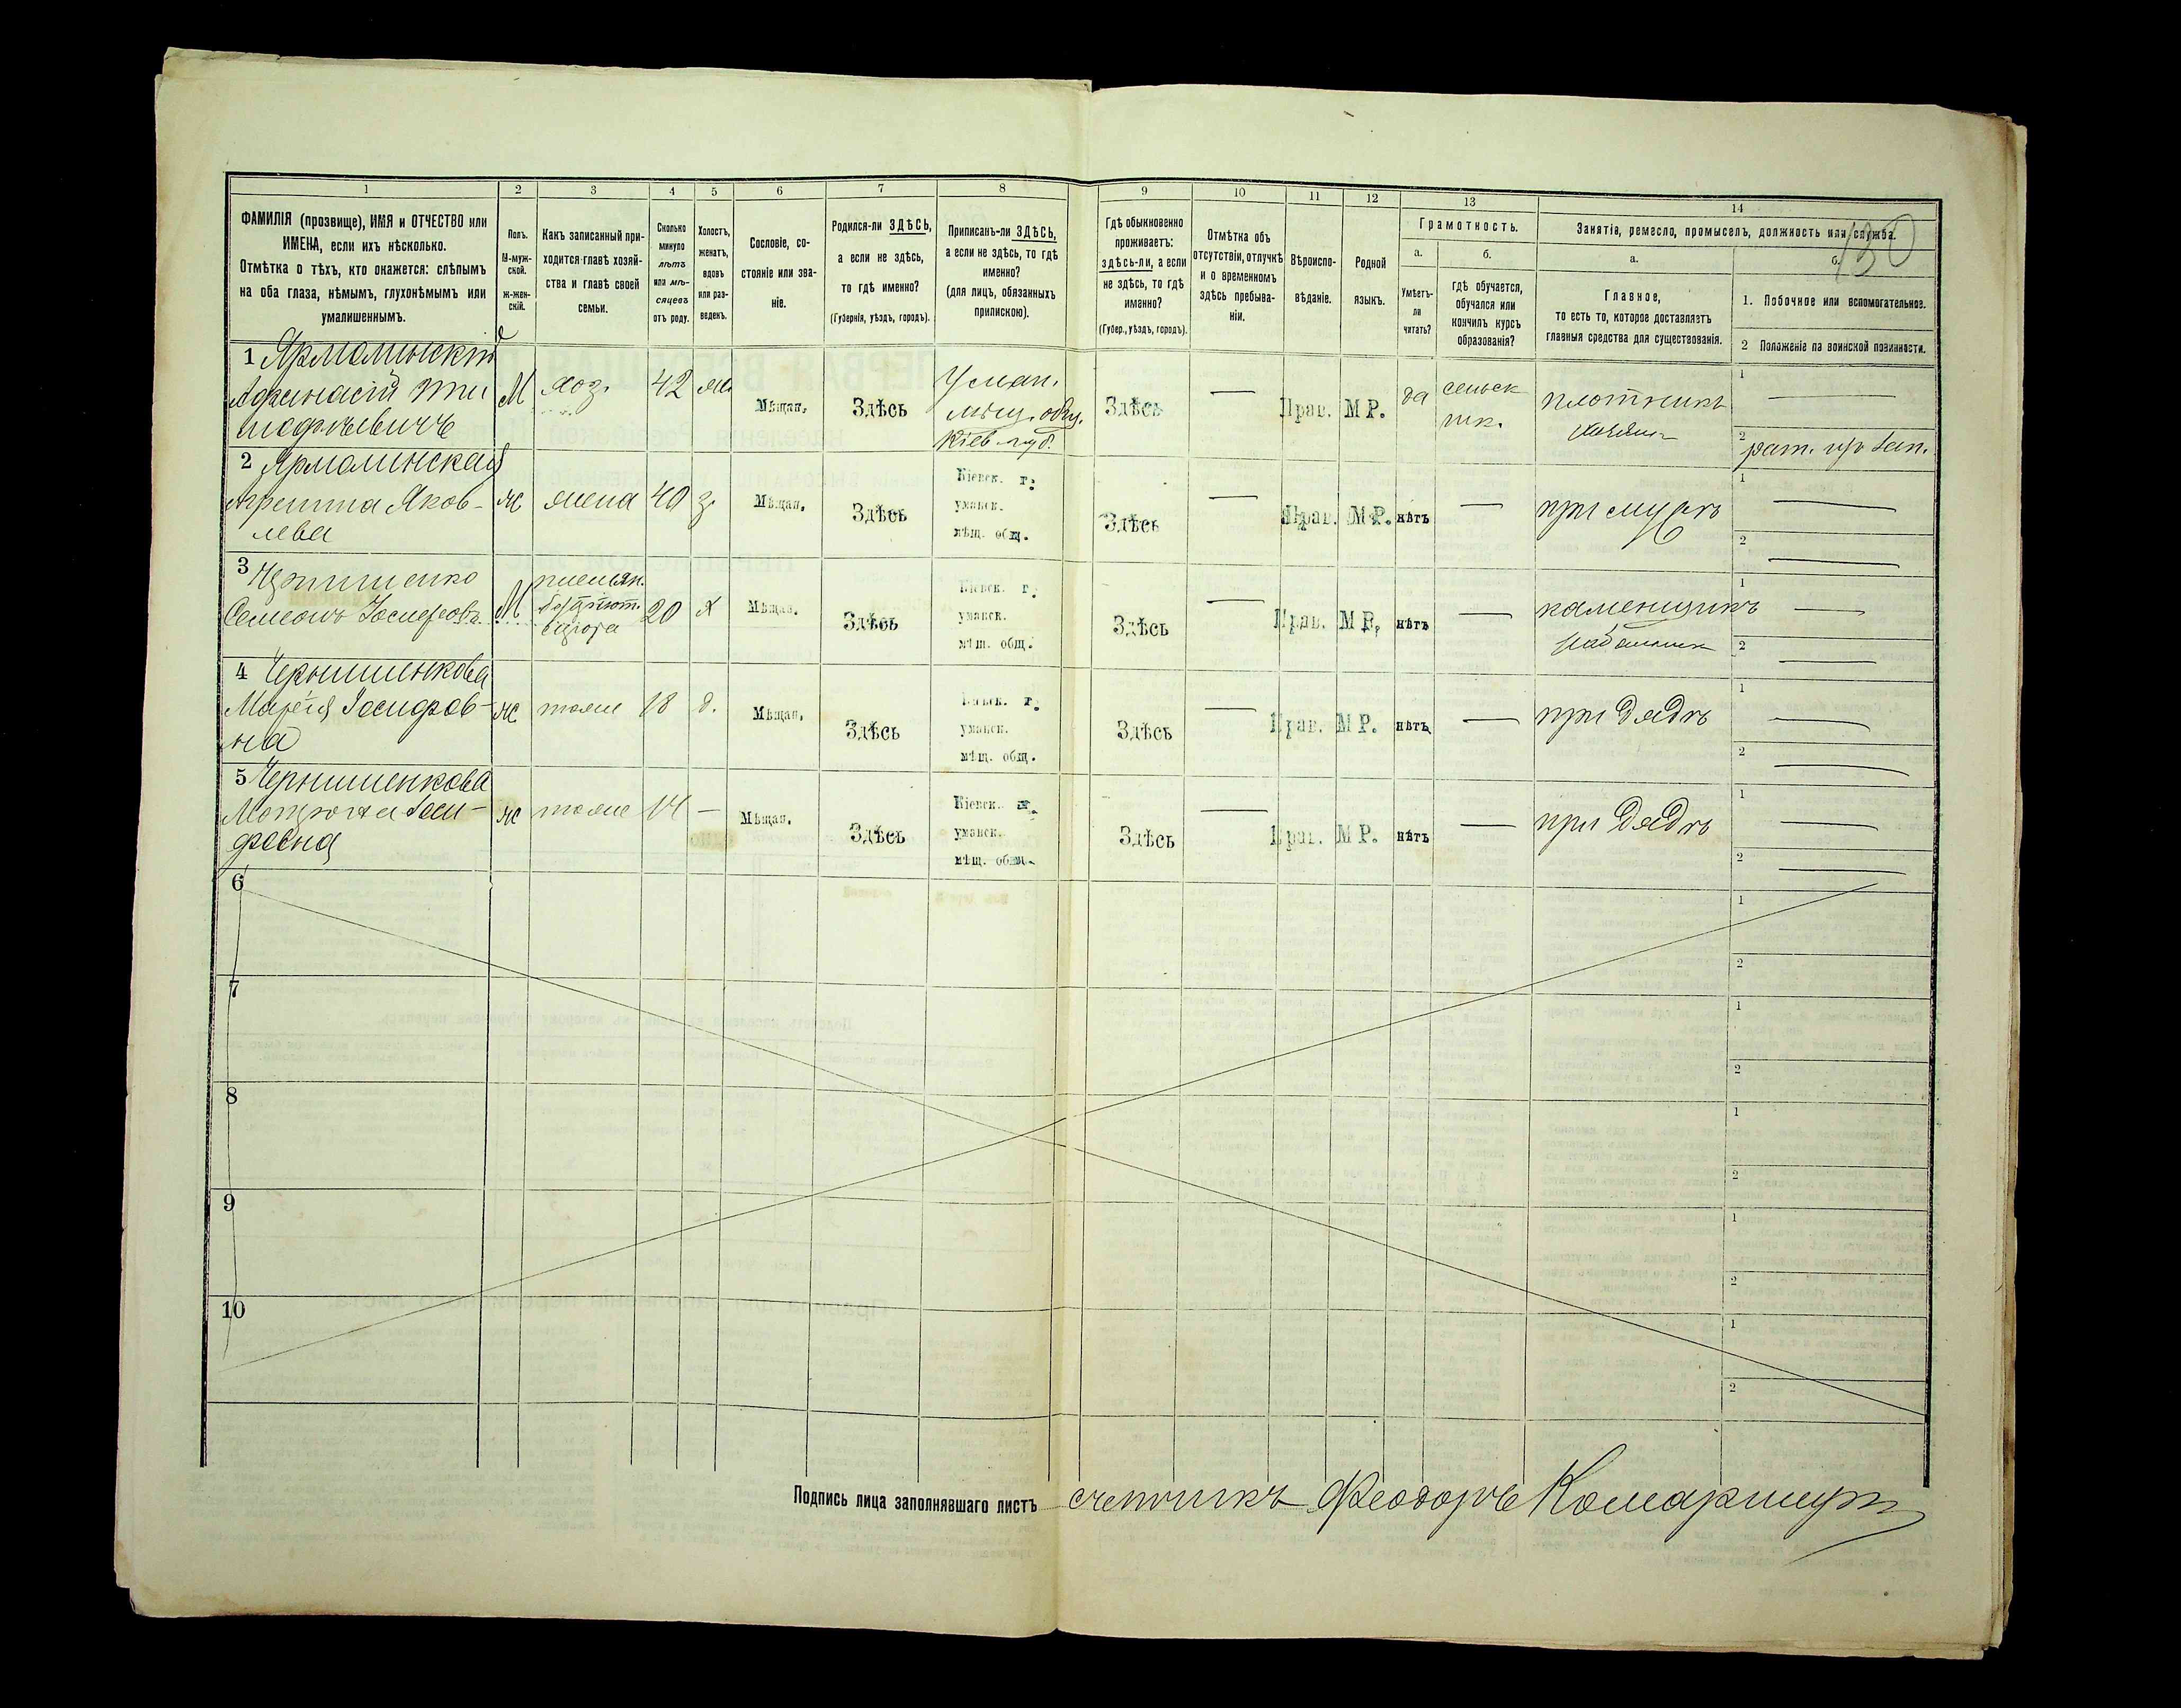 130
1 2 3 4 5 6 7 8 9 10 11 12 13 14
ФАМИЛІЯ (прозвище), ИМЯ и ОТЧЕСТВО или
ИМЕНА, если ихъ нѣсколько.
Отмѣтка о тѣхъ, кто окажется: слѣпымъ
на оба глаза, нѣмымъ, глухонѣмымъ или
умалишеннымъ.
Полъ.
М-муж-
ской.
ж-жен-
скій.
Какъ записанный при-
ходится главѣ хозяй-
ства и главѣ своей
семьи.
Сколько
минуло
лѣтъ
или мѣ-
сяцевъ
отъ роду.
Холостъ,
женатъ,
вдовъ
или раз-
веденъ.
Сословіе, со-
стояніе или зва-
ніе.
Родился-ли ЗДѢСЬ,
а если не здѣсь,
то гдѣ именно?
(Губернія, уѣздъ, городъ).
Приписанъ-ли ЗДѢСЬ,
а если не здѣсь, то гдѣ
именно?
(для лицъ, обязанныхъ
припискою).
Гдѣ обыкновенно
проживаетъ:
здѣсь-ли, а если
не здѣсь, то гдѣ
именно?
(Губер., уѣздъ, городъ).
Отмѣтка объ
отсутствіи, отлучкѣ
и о временномъ
здѣсь пребыва-
ніи.
Вѣроиспо-
вѣданіе.
Родной
языкъ.
Грамотность.
а.
Умѣетъ-
ли
читать?
б.
гдѣ обучается,
обучался или
кончилъ курсъ
образованія?
Занятіе, ремесло, промыселъ, должность или служба.
а.
Главное,
то есть то, которое доставляетъ
главныя средства для существованія.
б.
1. Побочное или вспомогательное.
2 Положеніе по воинской повинности.
1 Ярмолинскій
Афанасій Ти
мофѣевичъ
М хоз. 42 ж. Мѣщан. Здѣсь
Уман.
мѣщ. общ.
Кіев. губ.
Здѣсь — Прав. М Р. да
сельск
шк.
плотникъ
хозяинъ
1 —
2 рат. зап.
2 Ярмолинская
Агрипина Яков-
лева
ж жена 40 з. Мѣщан. Здѣсь
Кіевск. г.
уманск.
мѣщ. общ.
Здѣсь — Прав. М Р. нѣтъ — при мужѣ
1 —
2 —
3
Семеонъ Іосифовъ
М 20 х Мѣщан. Здѣсь
Кіевск. г.
уманск.
мѣщ. общ.
Здѣсь — Прав. М Р. нѣтъ — каменщикъ
1 —
2 —
4 Чернишенкова
Марія Іосифов-
на
ж тоже 18 д. Мѣщан. Здѣсь
Кіевск. г.
уманск.
мѣщ. общ.
Здѣсь — Прав. М Р. нѣтъ — при дядѣ
1 —
2 —
5 Чернишенкова
Мотрона Іоси-
фовна
ж тоже 14 — Мѣщан. Здѣсь
Кіевск. г.
уманск.
мѣщ. общ.
Здѣсь — Прав. М Р. нѣтъ — при дядѣ
1 —
2 —
6 1
2
7 1
2
8 1
2
9 1
2
10 1
2
Подпись лица заполнявшаго листъ счетчикъ Феодоръ